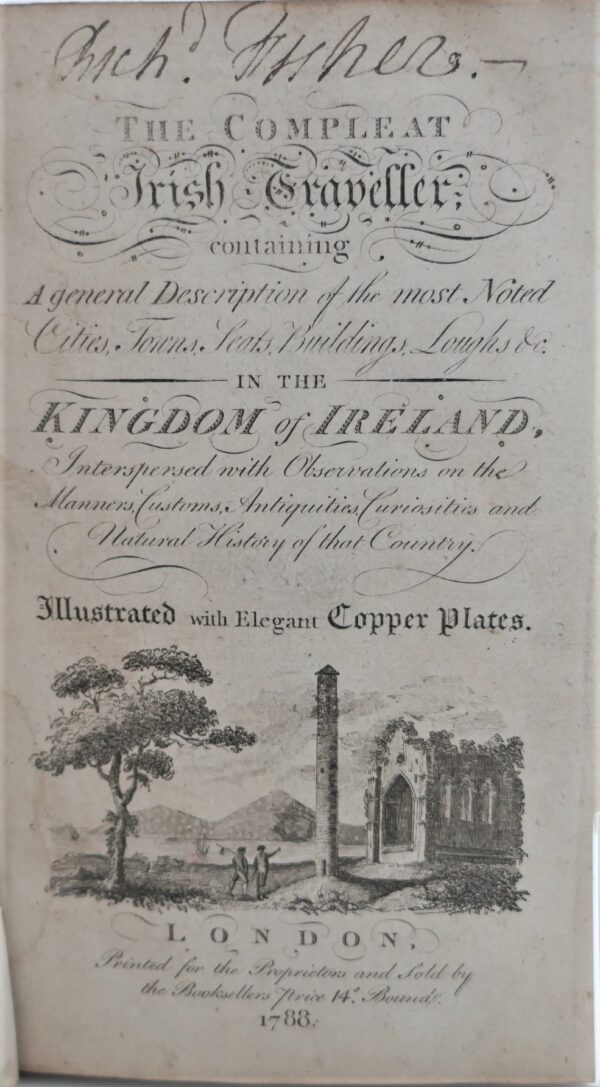 Richd. Fisher.—
THE COMPLEAT
Irish Traveller,
containing
A general Description of the most Noted
Cities, Towns, Seats, Buildings, Loughs &c.
IN THE
KINGDOM of IRELAND,
Interspersed with Observations on the
Manners, Customs, Antiquities, Curiosities and
Natural History of that Country.
Illustrated with Elegant Copper Plates.
LONDON,
Printed for the Proprietors and Sold by
the Booksellers Price 14s. Bound.
1788.